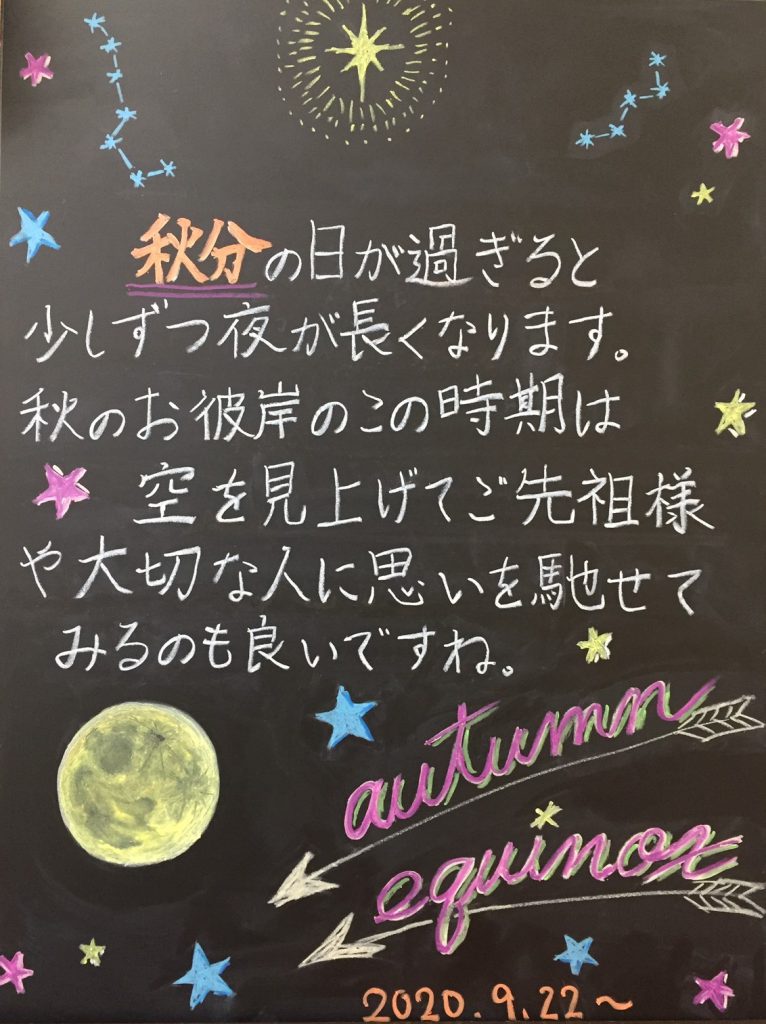 秋分の日が過ぎると
少しずつ夜が長くなります。
秋のお彼岸のこの時期は
空を見上げてご先祖様
や大切な人に思いを馳せて
みるのも良いですね。
autumn
equinox
2020.9.22~